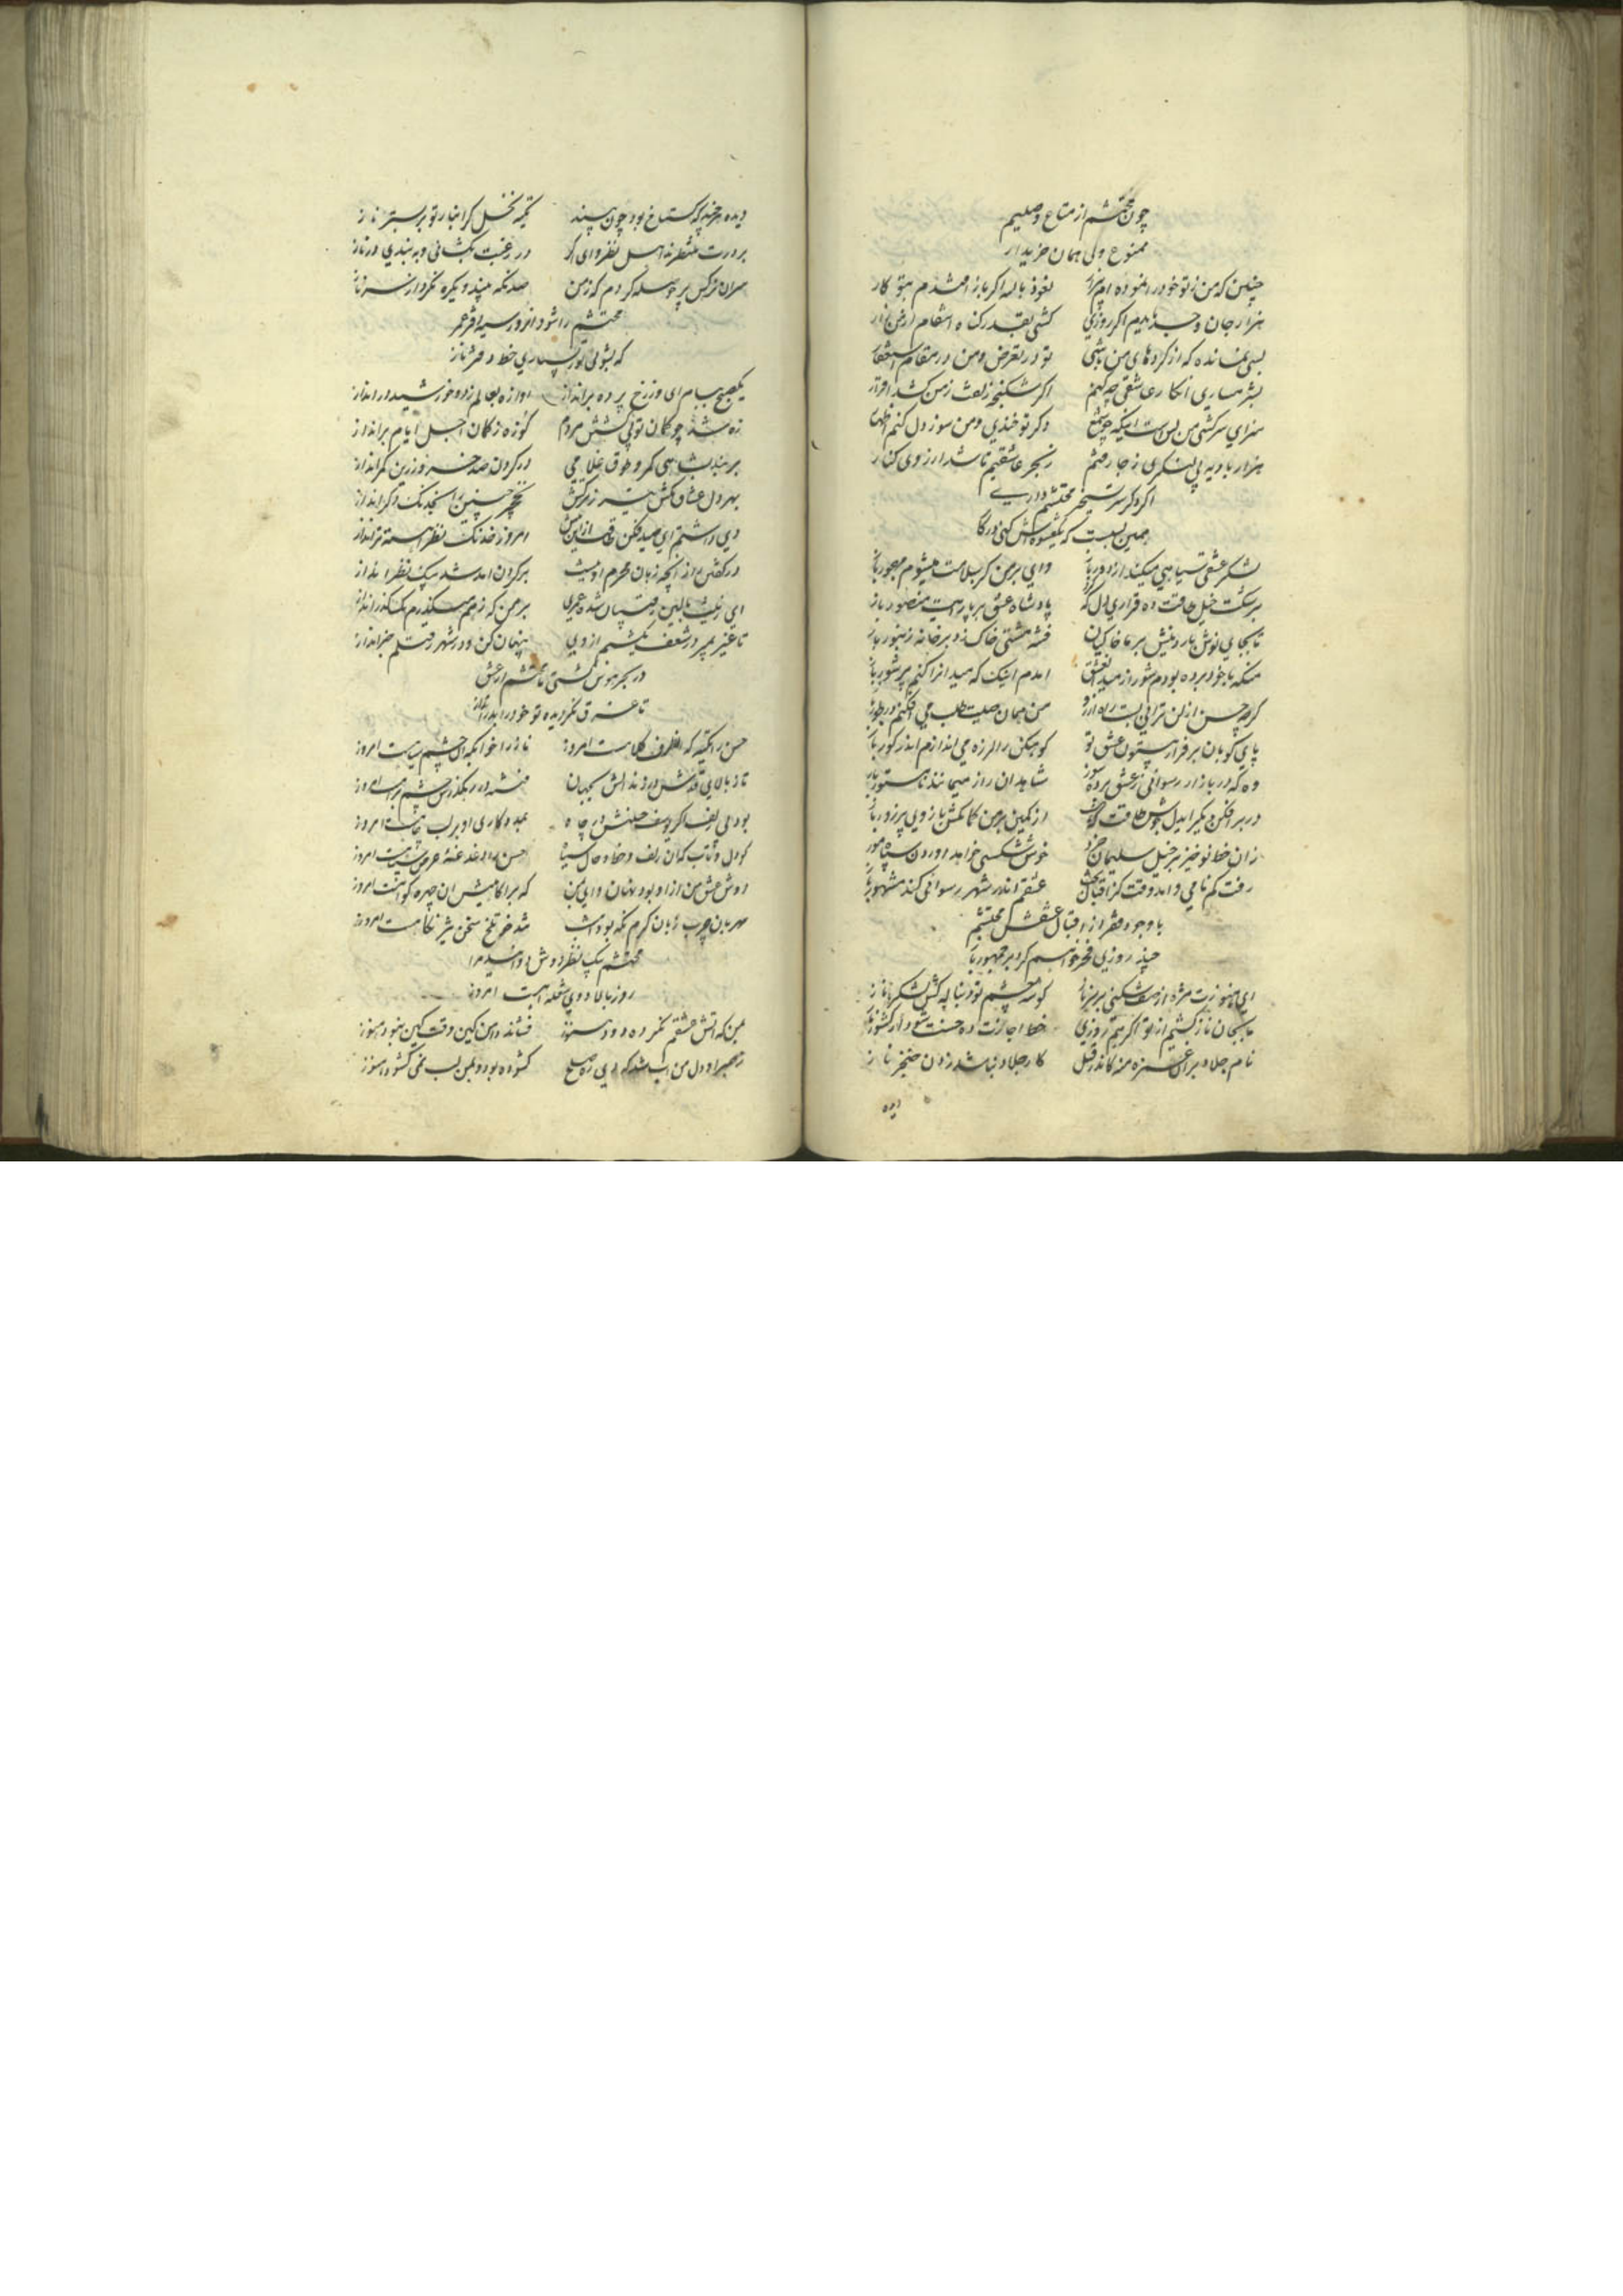 چون محتشم از متاع وصلیم
ممنوع ولی همان خریدار
چنین که من ز تو خود را نموده‌ام بیزار نعوذ بالله اگر باز افتدم بتو کار
هزار جان و جسد بایدم اگر روزی کشی بقدر گناه انتقام ازین زار
بسی نمانده که از کرده‌های من باشی تو در تعرض و من در مقام استغفار
بشرمساری انکار عشقی چه کنم اگر شکنجه زلفت ز من کشد اقرار
سزای سرکشی من بس است اینکه چو شمع دگر تو خندی و من سوز دل کنم اظهار
هزار بادیه پی لنگری ز جا رفتم زنجر عاشقیم تا شد آرزوی کنار
اگر دگر سر تسخیر محتشم داری
همین بسست که یک عشوه‌اش کنی در کار
لشکر عشقی سیاهی میکند از دور باز وای بر من گر سلامت میشوم مهجور باز
بر شکست خیل طاقت ده قراری دل که پادشاه عشق بر پا رایت منصور باز
تا بجای نوش بارد نیش بر ما خاکیان فتنه مشتی خاک زد بر خانه زنبور باز
منکه با خود برده بودم شور از میدان عشق آمدم اینک که میدان را کنم پر شور باز
گرچه حسن از لن ترانی بست راه آرزو من همان صیت طلب می‌افکنم در طور باز
پای کوبان بر فراز بیستون عشق تو کوهکن را لرزه می‌اندازم اندر گور باز
وه که در بازار رسوائی ز عشق پرده سوز شاهدان راز میمانند نامستور باز
در بر افکن دیگر ای دل جوشن طاقت که از کمین بر من کمانکش بازوی پر زور باز
زان خط نوخیز بر خیل سلیمان خرد خوش شکستی خواهد آوردن سپاه مور باز
رفت گم نامی و آمد وقت کز اقبال عشق عشقم اندر شهر رسوائی کند مشهور باز
با وجود فقر از اقبال عشقش محتشم
چند روزی فخر خواهم کرد بر جمهور باز
ای هنوزت مژه از صف شکنی بر سر ناز گوشه چشم تو دنباله کش لشکر ناز
ما بجان ناز کشیم از تو اگر هم روزی خط اجازت ده حسنت شود از کشور ناز
نام جلاد بر آن غمزه منه کاندر قتل کار جلاد نباشد زدن خنجر ناز
دیده
دیده هر چند که گستاخ بود چون بیند تکیه نخل گرانبار تو بر بستر ناز
بر درت منتظرند اهل نظر وای اگر در رغبت بگشائی و به بندی در ناز
سر آن نرگس پر حوصله گردم که ز من صد نگه بیند و یکره نگرد از سر ناز
محتشم را شود آنروز سیه دفتر عمر
که بشوئی تو بسیاری خط دفتر ناز
یک صبح ببام آی و ز رخ پرده برانداز آوازه بعالم زده خورشید در انداز
زه شد چو کمان تو پی کشتن مردم گو زه ز کمان اجل ایام برانداز
بر بند بشاهی کمر و طوق غلامی در گردن صد خسرو زرین کمر انداز
بهر دل عشاق بکش تیر ز ترکش نخچیر چنین را بخدنگ دگر انداز
دی داشتم ای صید فکن طاقت ازین بیش امروز خدنگ نظر آهسته‌تر انداز
در کشتن من ز آنچه زبان محرم او نیست بر گردن امید شد بیک نظر انداز
ای زینت بالین رقیبان شده عمری بر من که ز هم میگذرم یک گذر انداز
تا غیر بمیرد ز شعف یک شبم از وی پنهان کن و در شهر بقتلم خبر انداز
در بحر هوس کشتی ما محتشم از عشق
تا غرق نگردیده تو خود را بدر انداز
حسن را تکیه که آن طرف کلاه است امروز ناز را خوابگه آن چشم سیاهست امروز
ناز بالای قدش دارد و نه انش بجهان فتنه در رهگذرش چشم براهست امروز
بود بی زلف اگر یوسف حسنش در چاه
گو دل و تاب کزان زلف و خط و خال سیاه حسن را داغدغه عرض سپاهست امروز
روش عشق من از او بود نهان و این بین که بر آگاهیش آن چهره گواهست امروز
مهربان چرب زبان گرم نگه بود امشب تند خو تلخ سخن تیز نگاهست امروز
محتشم یک نظر دوش
روز بالا دوی شعله آهست امروز
من که آتش عشقم نمرده دود هنوز فشاند دامن کین وقت کین نبود هنوز
ز صبر او دل من آب شد که در پی صلح گشوده بود و بمن لب نمی گشود هنوز